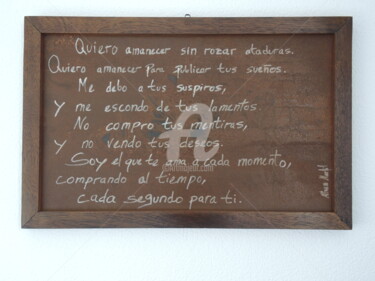 Quiero amanecer sin rozar ataduras.
Quiero amanecer para publicar tus sueños.
Me debo a tus suspiros,
Y me escondo de tus lamentos.
No compro tus mentiras,
y no vendo tus deseos.
Soy el que te ama a cada momento,
comprando al tiempo,
cada segundo para ti.